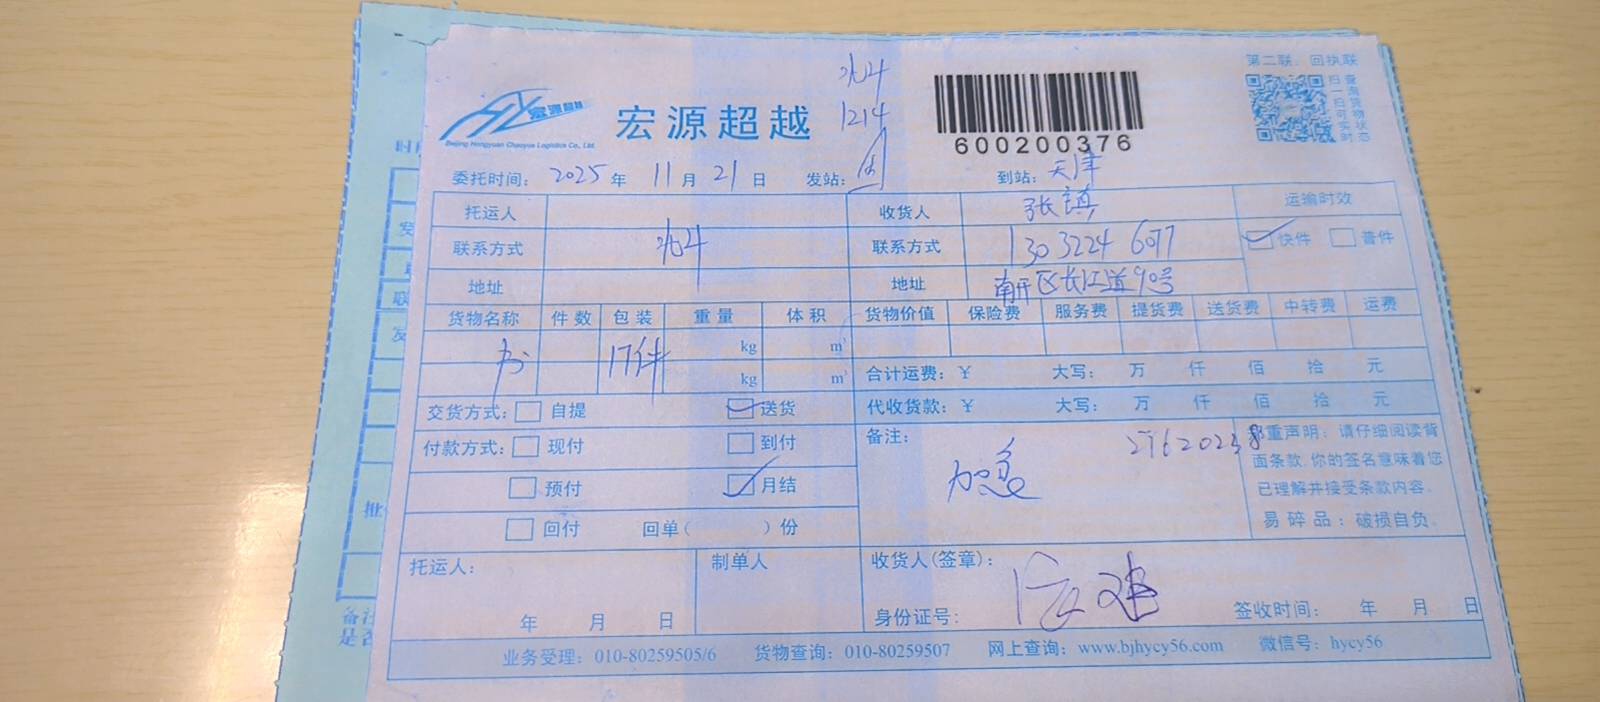 第二联：回执联
扫一扫可实时
查询货物状态
宏源超越
Beijing Hongyuan Chaoyue Logistics Co., Ltd.
宏源超越
1214
600200376
委托时间： 2025 年 11 月 21 日 发站： 到站： 天津
托运人 收货人 张镇 运输时效
联系方式 联系方式 130 3224 6077 快件 普件
地址 地址 南开区长江道90号
货物名称 件数 包装 重量 体积 货物价值 保险费 服务费 提货费 送货费 中转费 运费
17件 kg m³
kg m³ 合计运费：￥ 大写： 万 仟 佰 拾 元
交货方式： 自提 送货 代收货款：￥ 大写： 万 仟 佰 拾 元
付款方式： 现付 到付 备注： 加急
预付 月结
回付 回单（ ）份
郑重声明：请仔细阅读背
面条款,你的签名意味着您
已理解并接受条款内容。
易碎品：破损自负。
托运人： 制单人 收货人(签章)：
年 月 日 身份证号： 签收时间： 年 月 日
业务受理：010-80259505/6 货物查询：010-80259507 网上查询：www.bjhycy56.com 微信号：hycy56